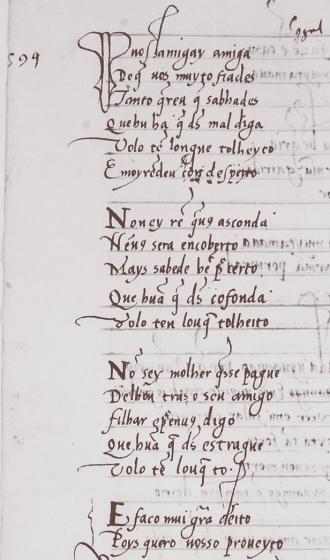 594
P nossa amiga y amiga
De q̄ uos muyto fiades
Tanto q̄reu q̄ sabhades
Que hūa q̄ d̄s mal diga
Uolo tē louque tolheyto
E moyredeu cō despeyto
Non ey rē q̄ uꝯ asconda
Nē uꝯ sera encoberto
Mays sabede bē p̄ certo
Que hūa q̄ d̄s cōfonda
Uolo ten louq̄ tolheito
Nō sey molher q̄sse pague
Delhōn tras o seu amigo
filhar e p̄ en uꝯ digo
Que hūa q̄ d̄s estrague
Uolo tē louq̄ to
E faco mui grā d̄eito
Poys quero uosso proueyto